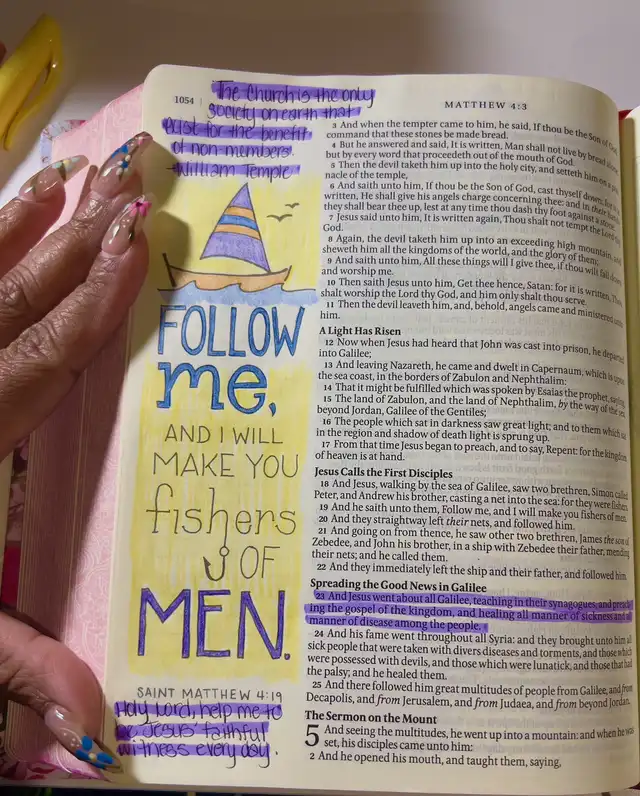 1054
MATTHEW 4:3
The Church is the only
society on earth that
exist for the benefit
of non members.
-William Temple-
FOLLOW
me,
AND I WILL
MAKE YOU
fishers
OF
MEN.
SAINT MATTHEW 4:19
Holy Lord, help me to
be Jesus' faithful
witness every day.
3 And when the tempter came to him, he said, If thou be the Son of God,
command that these stones be made bread.
4 But he answered and said, It is written, Man shall not live by bread alone,
but by every word that proceedeth out of the mouth of God.
5 Then the devil taketh him up into the holy city, and setteth him on a
nacle of the temple,
6 And saith unto him, If thou be the Son of God, cast thyself down: for it is
written, He shall give his angels charge concerning thee: and in their hands
they shall bear thee up, lest at any time thou dash thy foot against a stone.
7 Jesus said unto him, It is written again, Thou shalt not tempt the Lord thy
God.
8 Again, the devil taketh him up into an exceeding high mountain, and
sheweth him all the kingdoms of the world, and the glory of them;
9 And saith unto him, All these things will I give thee, if thou wilt fall down
and worship me.
10 Then saith Jesus unto him, Get thee hence, Satan: for it is written, Thou
shalt worship the Lord thy God, and him only shalt thou serve.
11 Then the devil leaveth him, and, behold, angels came and ministered unto
him.
A Light Has Risen
12 Now when Jesus had heard that John was cast into prison, he departed
into Galilee;
13 And leaving Nazareth, he came and dwelt in Capernaum, which is upon
the sea coast, in the borders of Zabulon and Nephthalim:
14 That it might be fulfilled which was spoken by Esaias the prophet, saying,
15 The land of Zabulon, and the land of Nephthalim, by the way of the sea,
beyond Jordan, Galilee of the Gentiles;
16 The people which sat in darkness saw great light; and to them which sat
in the region and shadow of death light is sprung up.
17 From that time Jesus began to preach, and to say, Repent: for the kingdom
of heaven is at hand.
Jesus Calls the First Disciples
18 And Jesus, walking by the sea of Galilee, saw two brethren, Simon called
Peter, and Andrew his brother, casting a net into the sea: for they were fishers.
19 And he saith unto them, Follow me, and I will make you fishers of men.
20 And they straightway left their nets, and followed him.
21 And going on from thence, he saw other two brethren, James the son of
Zebedee, and John his brother, in a ship with Zebedee their father, mending
their nets; and he called them.
22 And they immediately left the ship and their father, and followed him.
Spreading the Good News in Galilee
23 And Jesus went about all Galilee, teaching in their synagogues, and preach-
ing the gospel of the kingdom, and healing all manner of sickness and all
manner of disease among the people.
24 And his fame went throughout all Syria: and they brought unto him all
sick people that were taken with divers diseases and torments, and those which
were possessed with devils, and those which were lunatick, and those that had
the palsy; and he healed them.
25 And there followed him great multitudes of people from Galilee, and from
Decapolis, and from Jerusalem, and from Judaea, and from beyond Jordan.
The Sermon on the Mount
5 And seeing the multitudes, he went up into a mountain: and when he was
set, his disciples came unto him:
2 And he opened his mouth, and taught them, saying,